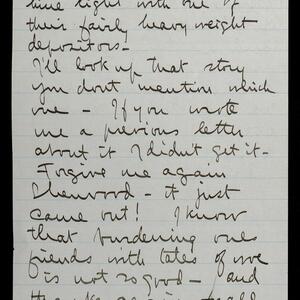 time right with one of
their fairly heavy weight
depositors —
I'll look up that story
you dont mention which
one — If you wrote
me a previous letter
about it I didn't get it —
Forgive me again
Sherwood — it just
came out! I know
that burdening ones
friends with tales of woe
is not so good — and